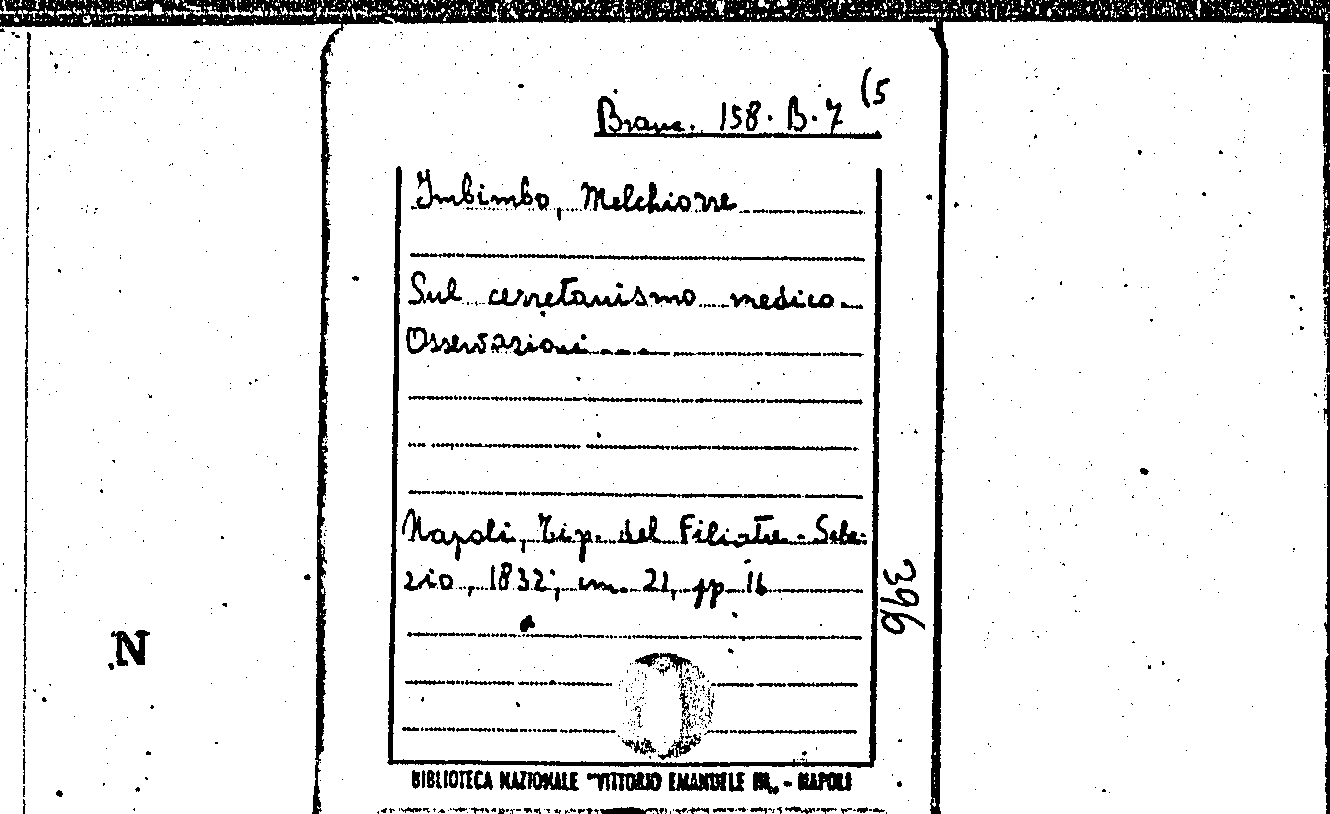 Branc. 158. B. 7 (5
Imbimbo, Melchiorre
Sul cerretanismo medico.
Osservazioni...
Napoli, Tip. del Filiatre-Sebe-
zio, 1832, cm. 21, pp 16
396
N
BIBLIOTECA NAZIONALE "VITTORIO EMANUELE III„ - NAPOLI